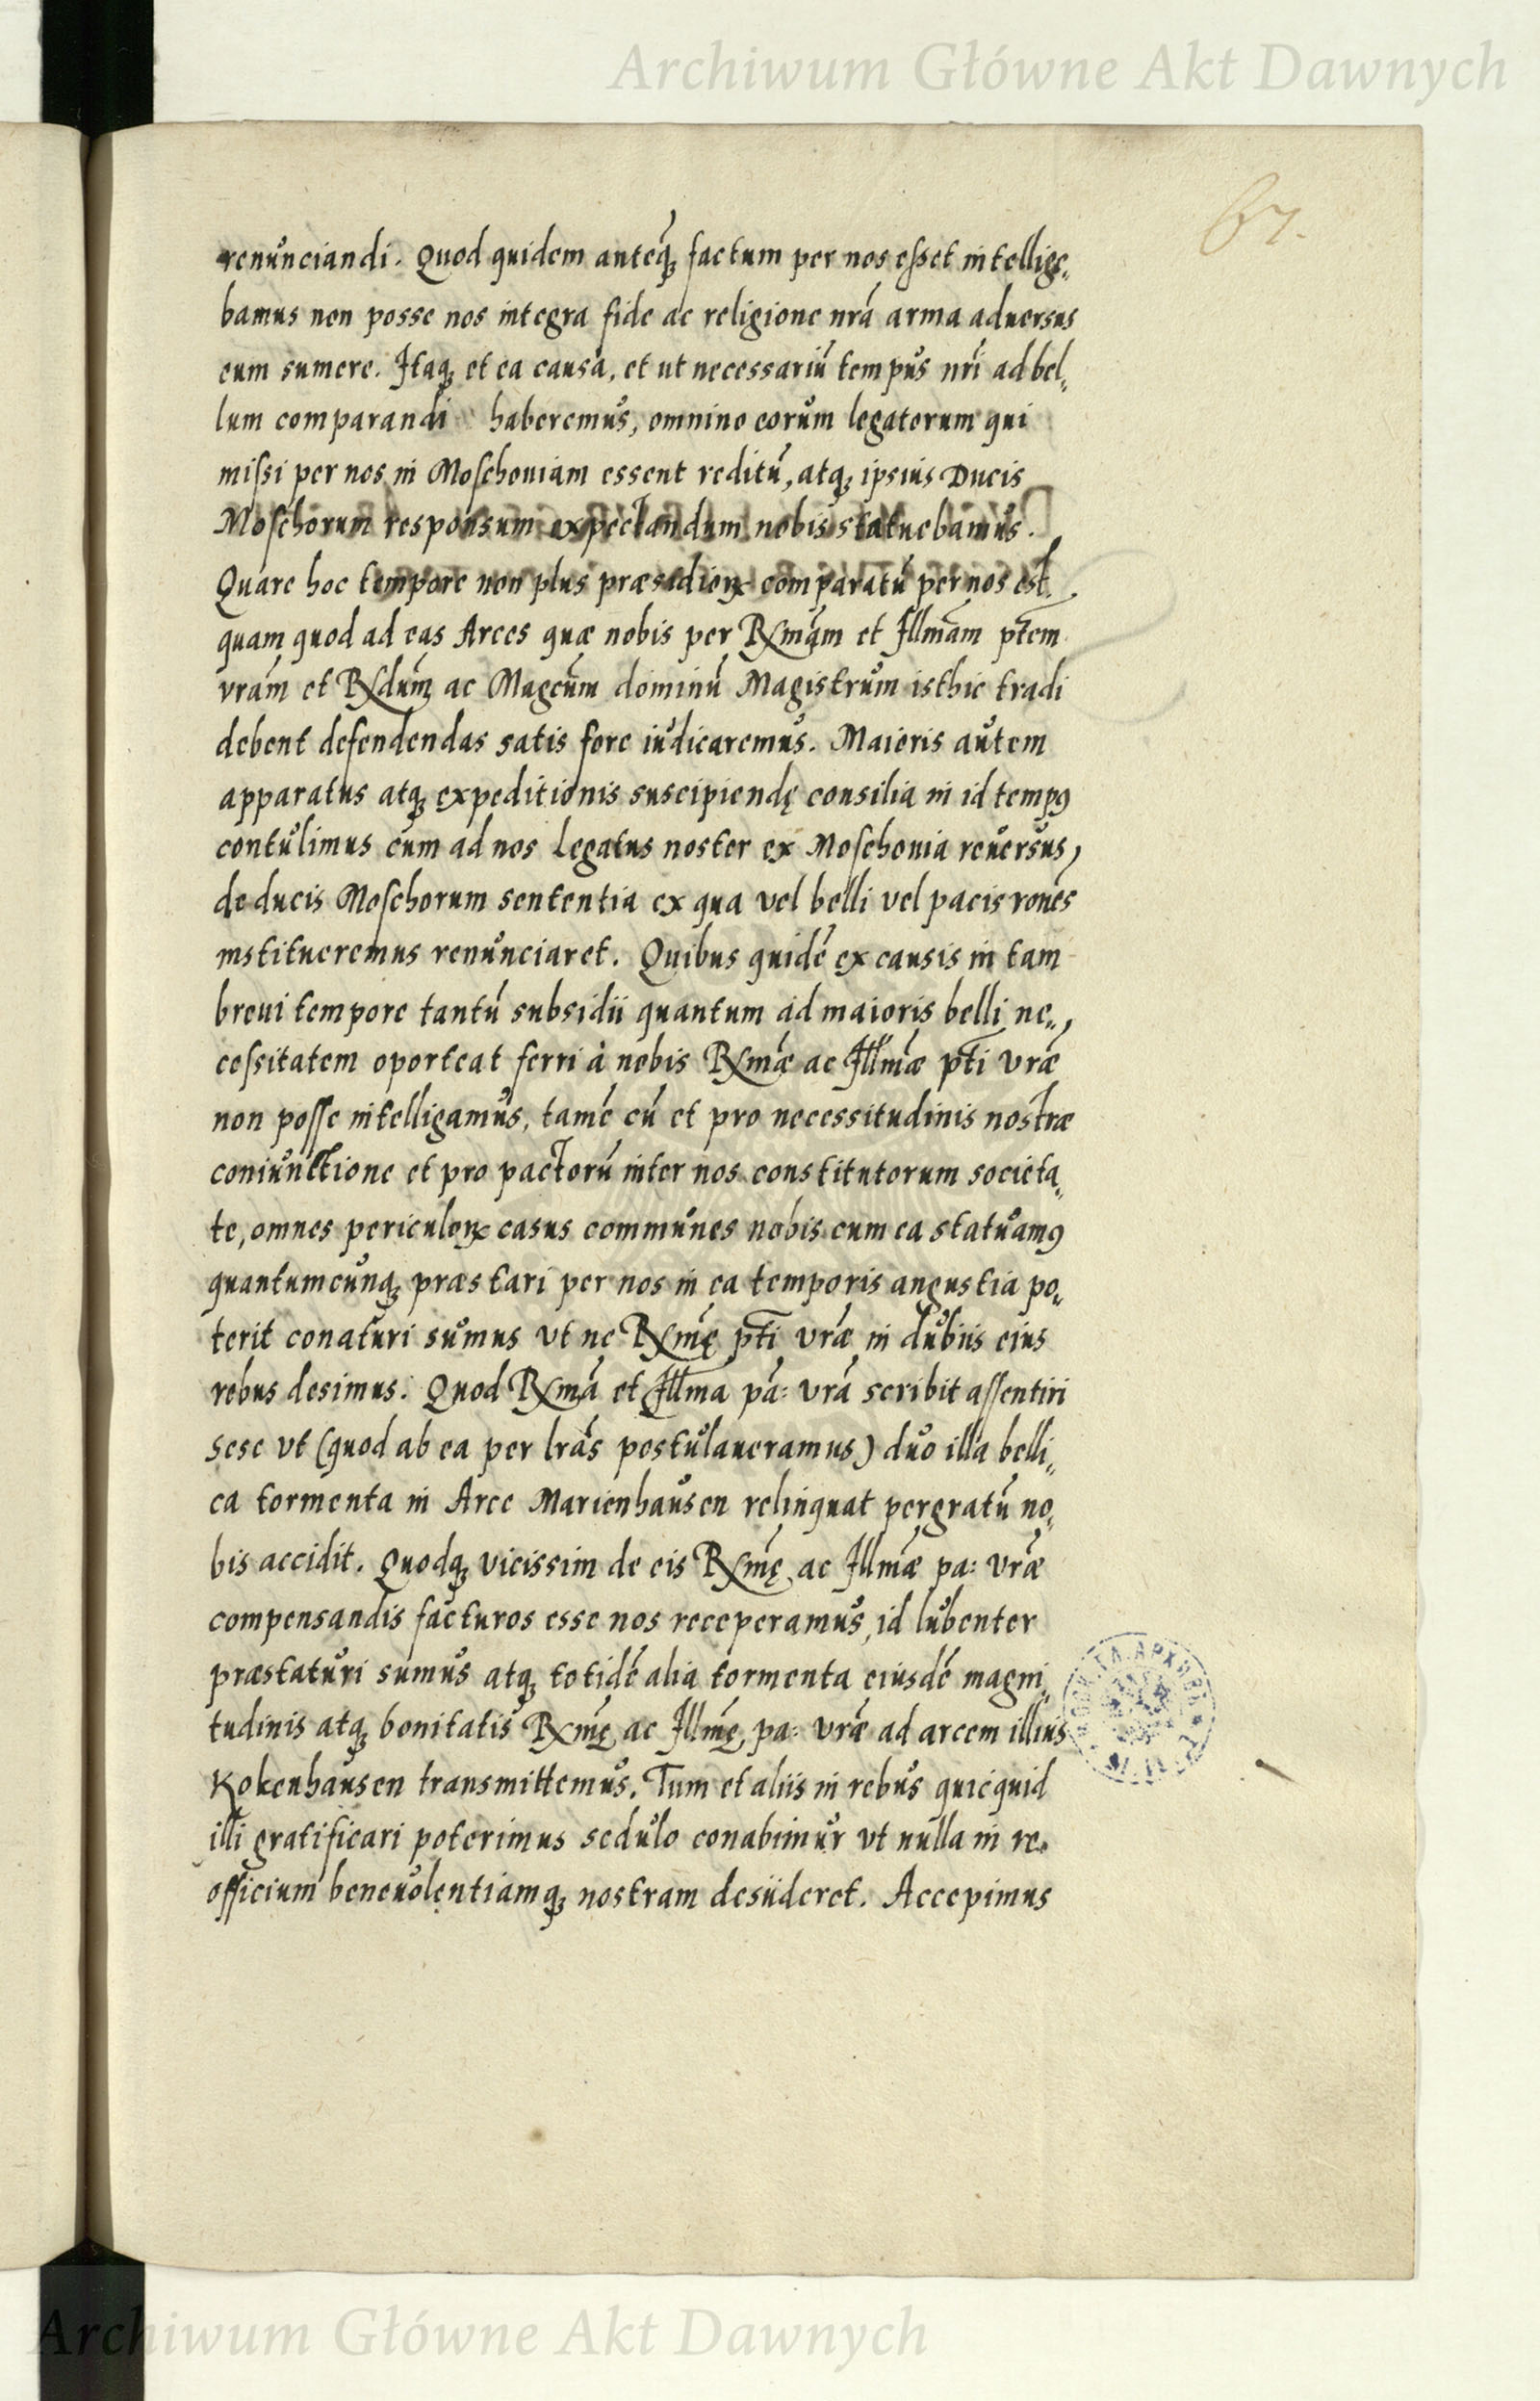 Archiwum Główne Akt Dawnych
67.
renunciandi. Quod quidem anteq́ꝫ factum per nos esset intellige„
bamus non posse nos integra fide ac religione nrá arma aduersus
eum sumere. Itaqꝫ et ea causa, et ut necessariú tempus nrí ad bel„
lum comparandi haberemus, omnino eorum legatorum qui
missi per nos in Moschouiam essent reditú, atqꝫ ipsius Ducis
Moschorum responsum expectandum nobis statuebamus.
Quare hoc tempore non plus præsidioꝝ comparatú per nos est.
quam quod ad eas Arces quæ nobis per Rx̄mam et Illmam ptem
vrám et Rx̄dum ac Magcum dominú Magistrum isthic tradi
debent defendendas satis fore iudicaremus. Maioris autem
apparatus atqꝫ expeditionis suscipiendę consilia in id tempꝰ
contulimus cum ad nos Legatus noster ex Moschouia reuersus,
de ducis Moschorum sententia ex qua vel belli vel pacis ronés
institueremus renunciaret. Quibus quidé ex causis in tam
breui tempore tantú subsidii quantum ad maioris belli ne„
cessitatem oporteat ferri à nobis Rx̄mæ ac Illmæ pti vræ
non posse intelligamus, tamé cú et pro necessitudinis nostræ
coniunctione et pro pactorú inter nos constitutorum societa„
te, omnes periculoꝝ casus communes nobis cum ea statuamꝰ
quantumcunqꝫ præstari per nos in ea temporis angustia po„
terit conaturi sumus vt ne Rx̄mę pti vræ in dubiis eius
rebus desimus. Quod Rx̄má et Illma pá: vrá scribit assentiri
sese vt (quod ab ea per lrás postulaueramus) duo illa belli„
ca tormenta in Arce Marienhausen relinquat pergratú no„
bis accidit. Quodqꝫ vicissim de eis Rx̄mę ac Illmæ pa: vræ
compensandis facturos esse nos receperamus, id lubenter
præstaturi sumus atqꝫ totidé alia tormenta eiusdé magni„
tudinis atqꝫ bonitatis Rx̄mę ac Illmę pa: vræ ad arcem illius
Kokenhausen transmittemus. Tum et aliis in rebus quicquid
illi gratificari poterimus sedulo conabimur vt nulla in re
officium beneuolentiamqꝫ nostram desideret. Accepimus
Archiwum Główne Akt Dawnych